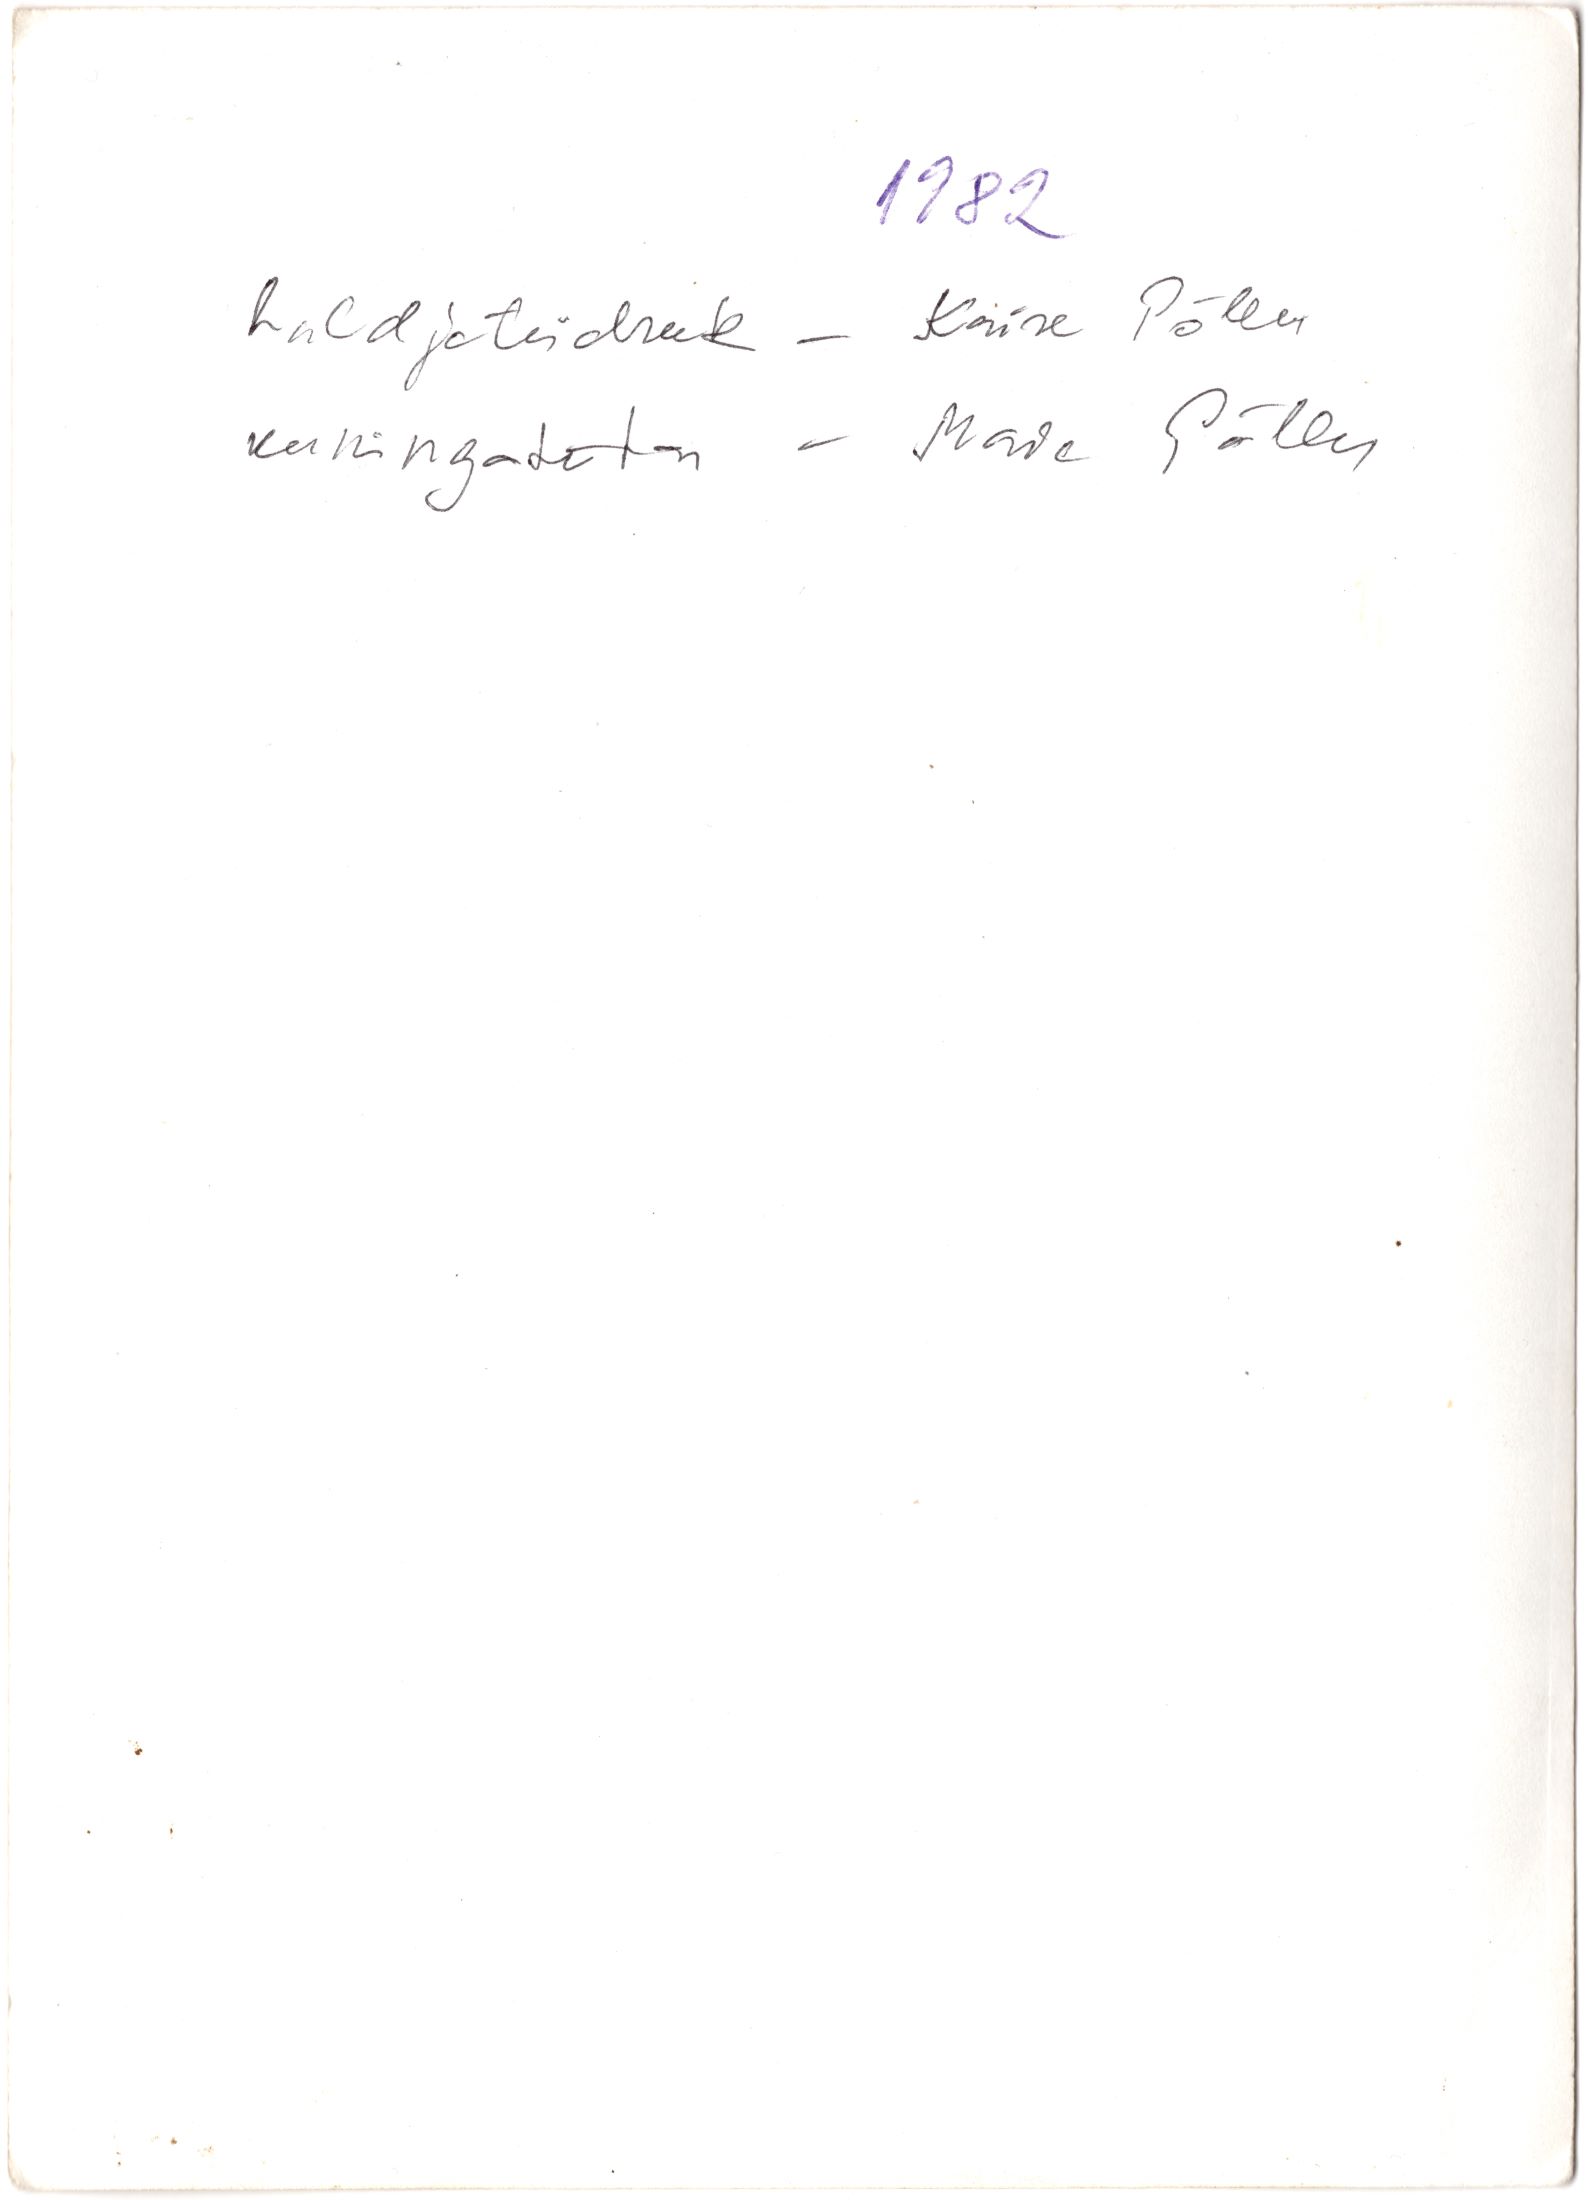 1982
haldjatüdruk – Kaire Põllu
kuningatütar – Mare Põllu